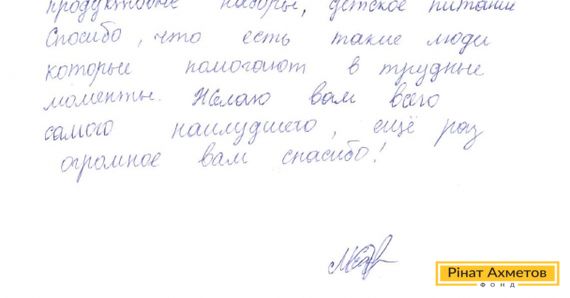 продуктовые наборы, детское питание
Спосибо, что есть такие люди
которые помогают в трудные
моменты. Желаю вам всего
самого наилудшего, ещё раз
огромное вам спасибо!
Рінат Ахметов
ФОНД